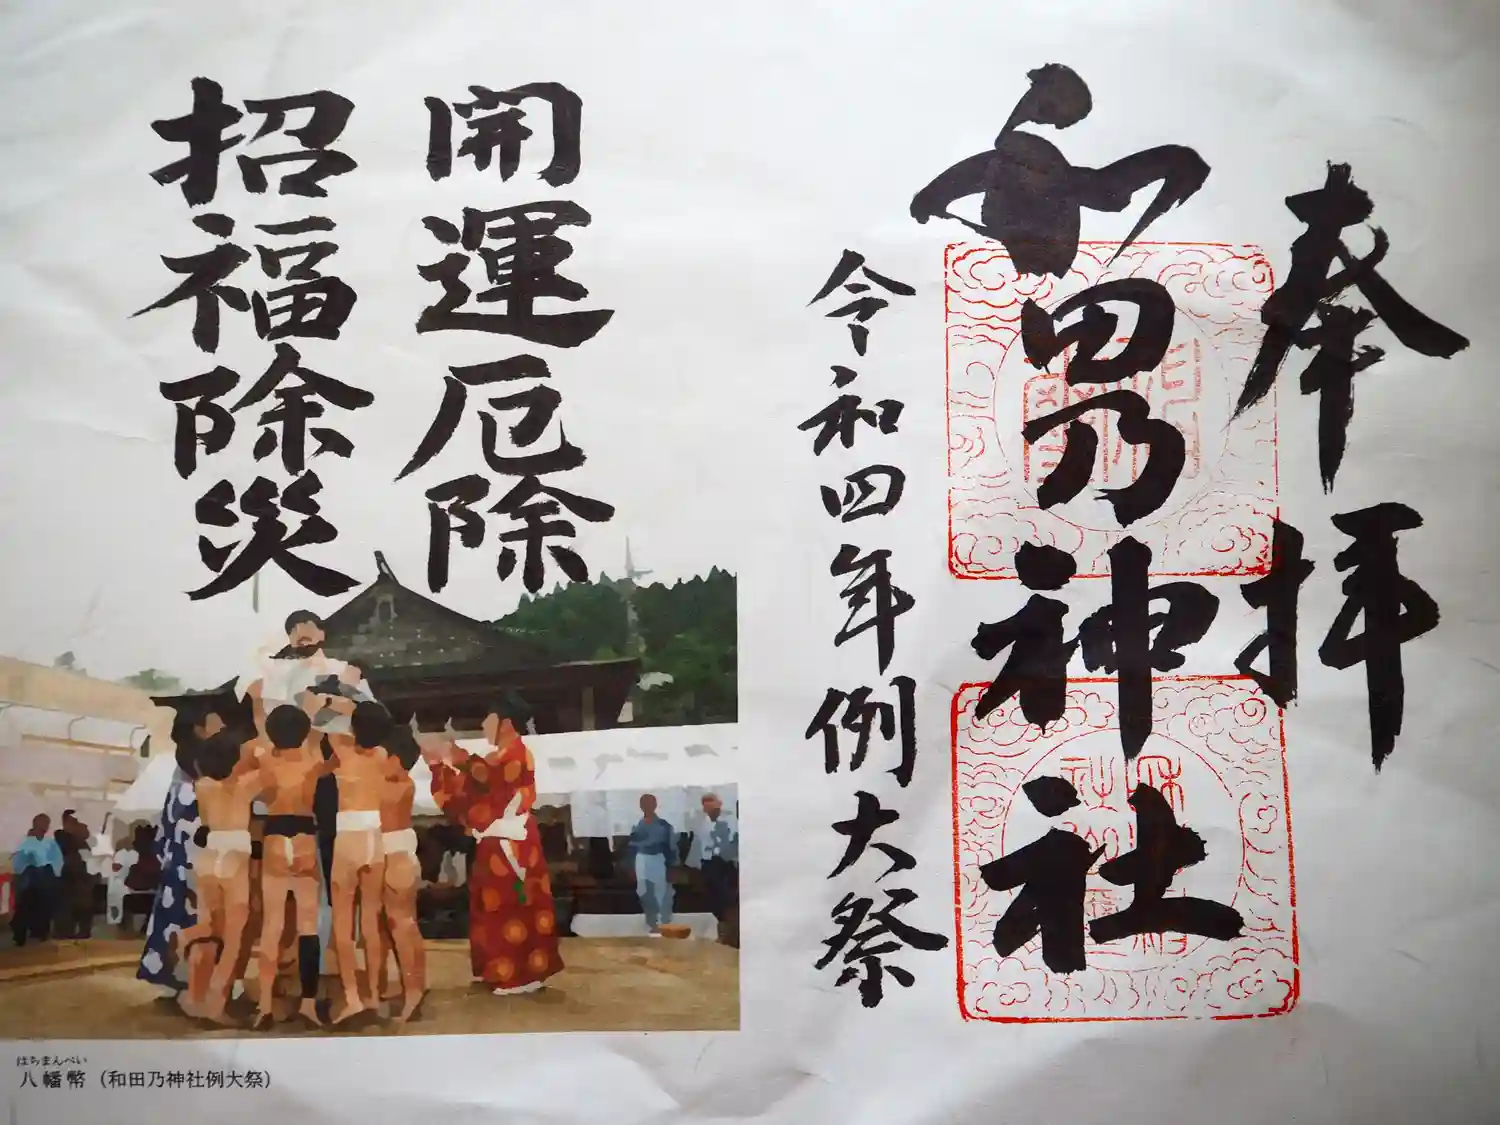 奉拝
和田乃神社
令和四年例大祭
開運厄除
招福除災
はちまんべい
八幡幣（和田乃神社例大祭）